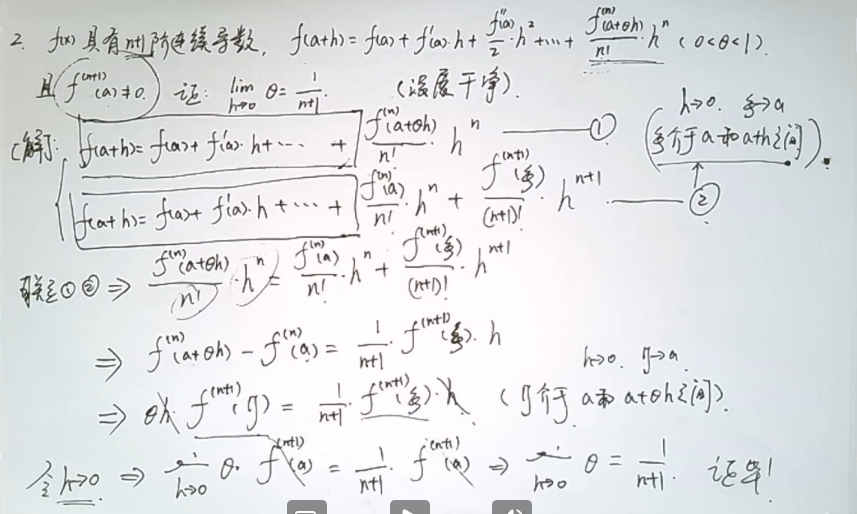 2. f(x) 具有 n+1 阶连续导数, f(a+h) = f(a) + f'(a)·h + f''(a)/2·h² + ⋯ + f⁽ⁿ⁾(a+θh)/n!·hⁿ (0<θ<1).
且 f⁽ⁿ⁺¹⁾(a)≠0. 证: lim_{h→0} θ = 1/(n+1). (没废干净).
(解): f(a+h) = f(a) + f'(a)·h + ⋯ + f⁽ⁿ⁾(a+θh)/n! hⁿ ——①
(h→0. ξ→a
ξ介于 a 和 a+h 之间).
f(a+h) = f(a) + f'(a)·h + ⋯ + f⁽ⁿ⁾(a)/n!·hⁿ + f⁽ⁿ⁺¹⁾(ξ)/(n+1)!·hⁿ⁺¹ ——②
联立①②⇒ f⁽ⁿ⁾(a+θh)/n!·hⁿ = f⁽ⁿ⁾(a)/n!·hⁿ + f⁽ⁿ⁺¹⁾(ξ)/(n+1)!·hⁿ⁺¹
⇒ f⁽ⁿ⁾(a+θh) − f⁽ⁿ⁾(a) = 1/(n+1)·f⁽ⁿ⁺¹⁾(ξ)·h
h→0. η→a
⇒ θh·f⁽ⁿ⁺¹⁾(η) = 1/(n+1)·f⁽ⁿ⁺¹⁾(ξ)·h (η介于 a 和 a+θh 之间).
令 h→0 ⇒ lim_{h→0} θ·f⁽ⁿ⁺¹⁾(a) = 1/(n+1)·f⁽ⁿ⁺¹⁾(a) ⇒ lim_{h→0} θ = 1/(n+1). 证毕!